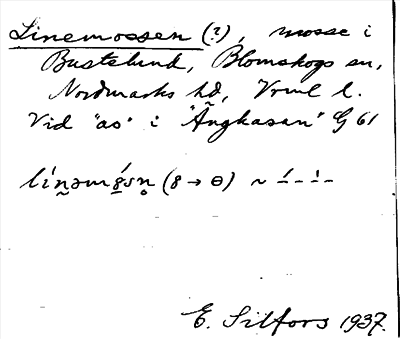 Linemossen (?), mosse i
Bustelund, Blomskogs sn,
Nordmarks hd, Vrml l.
Vid "as" i "Ängkasan" G 61
(8 → ɵ) ~
E. Silfors 1937.